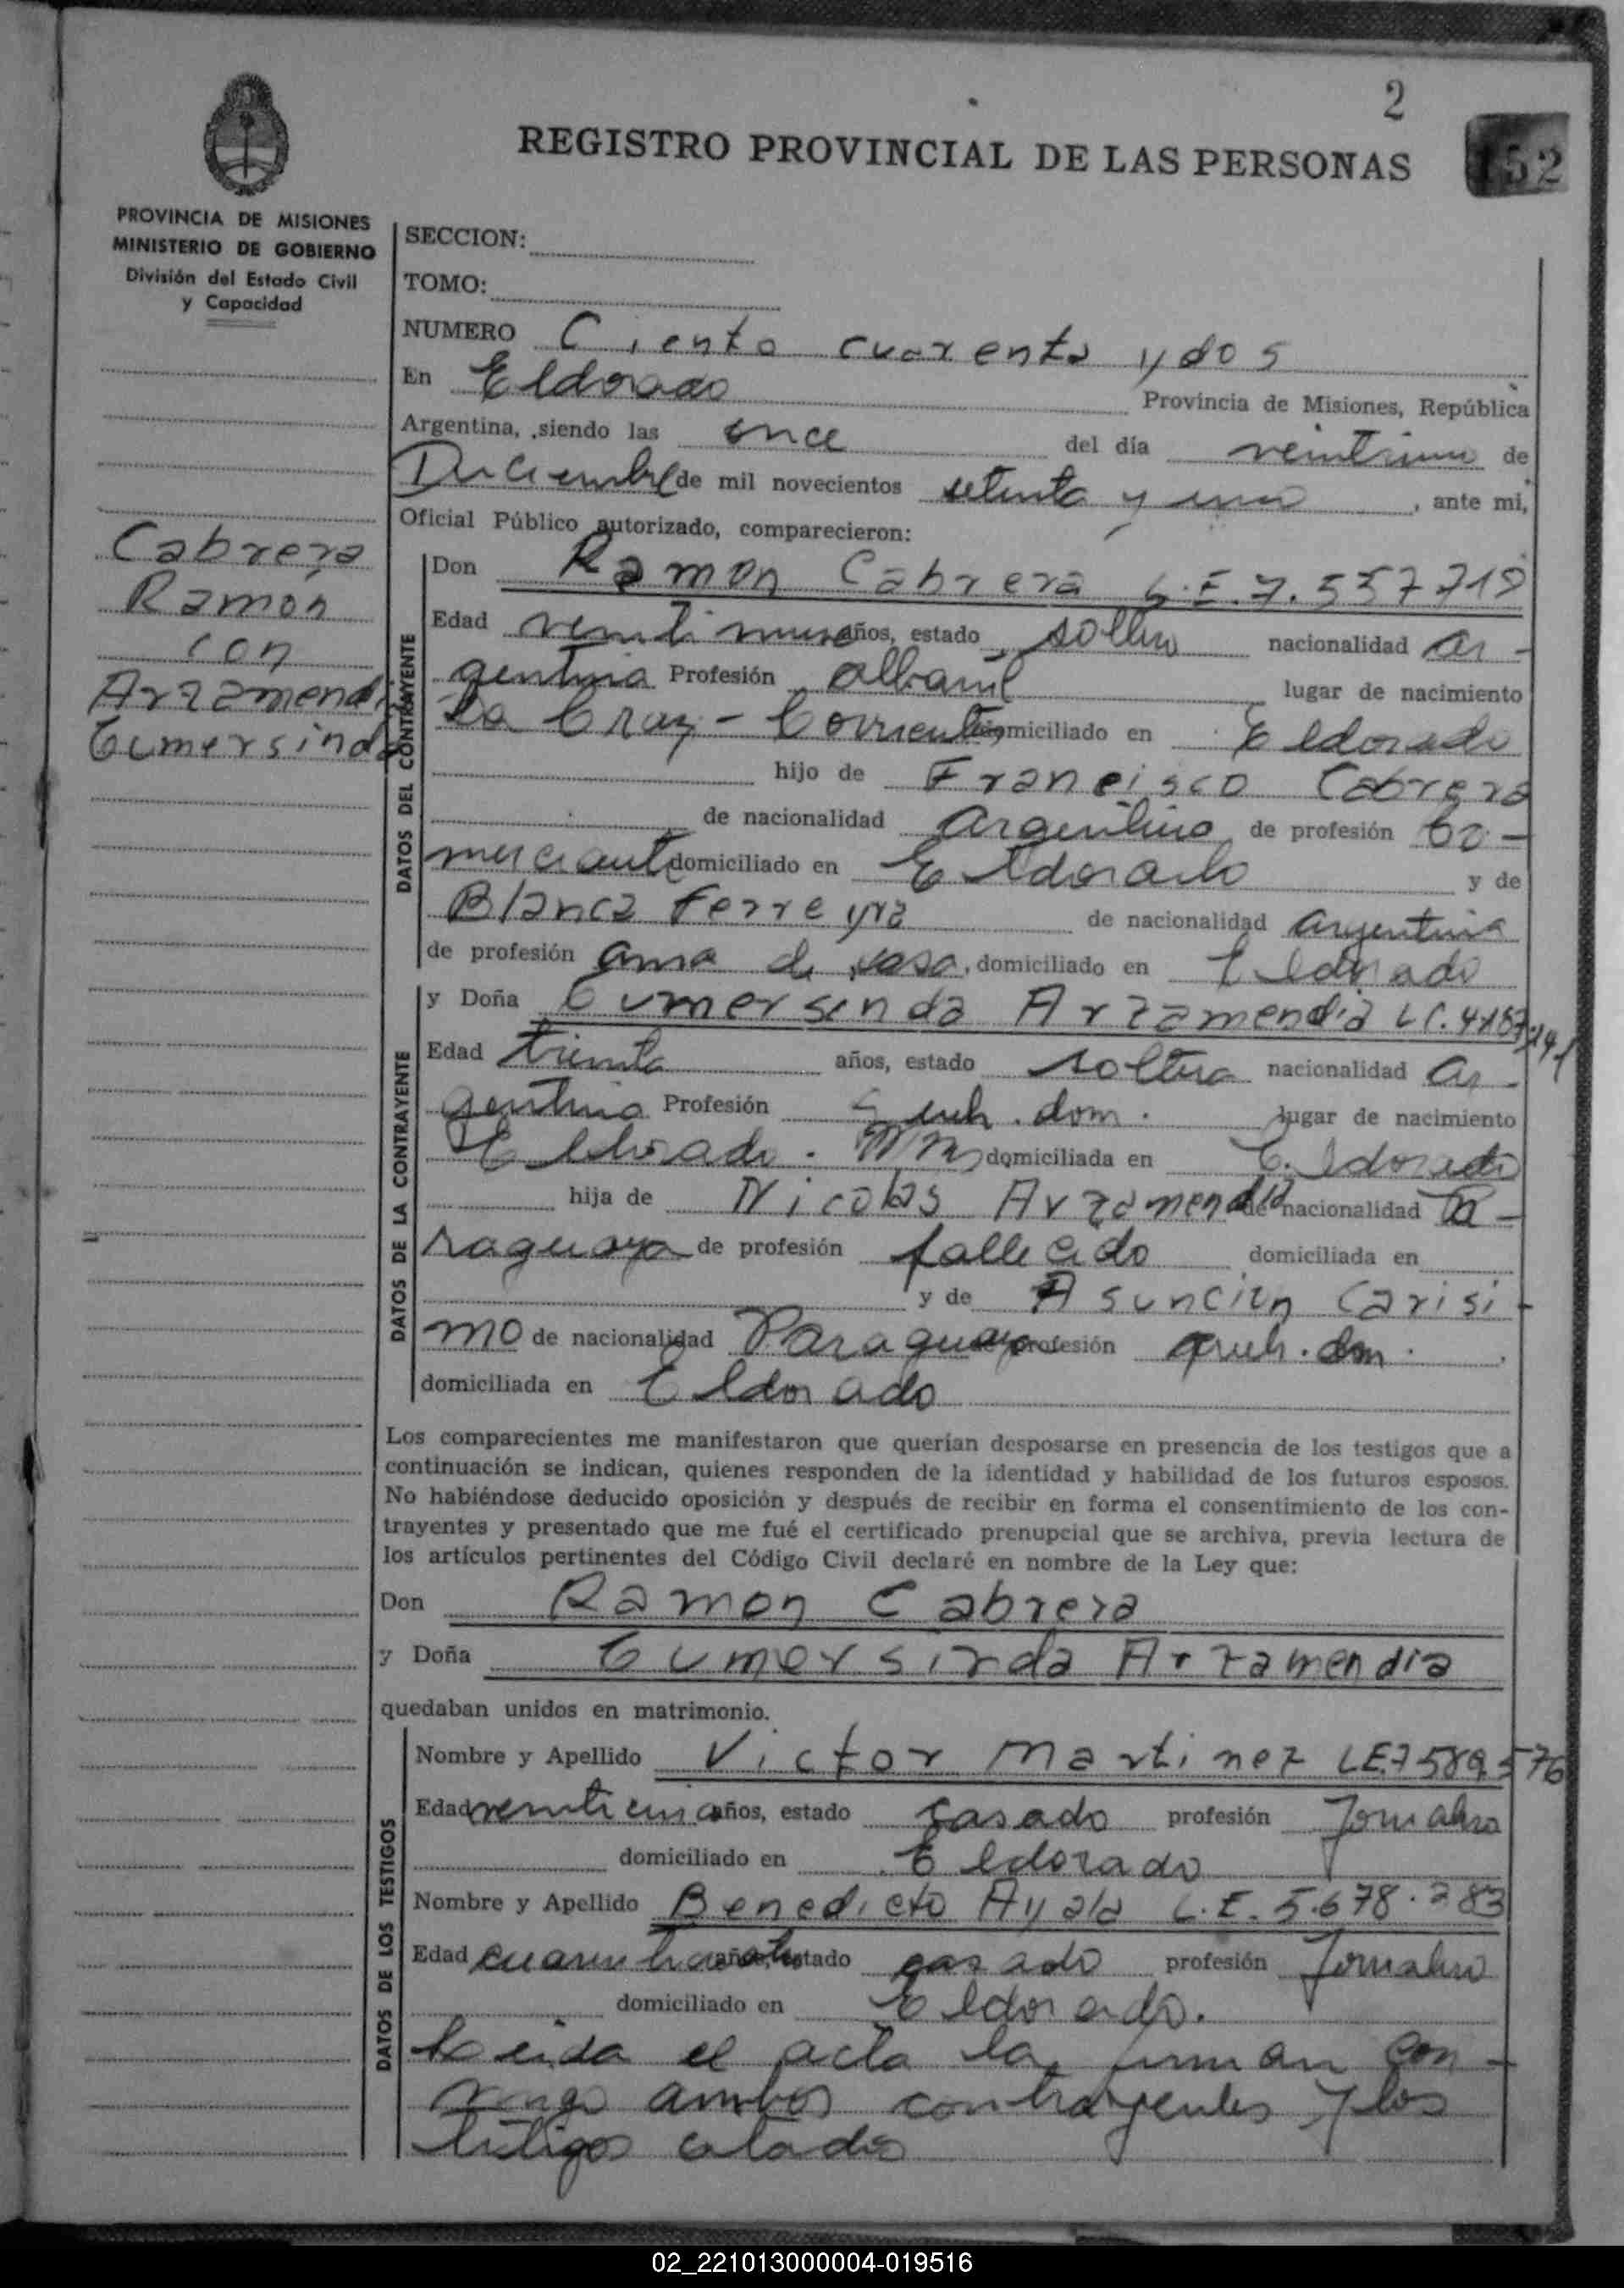 2
REGISTRO PROVINCIAL DE LAS PERSONAS
152
PROVINCIA DE MISIONES
MINISTERIO DE GOBIERNO
División del Estado Civil
y Capacidad
Cabrera
Ramón
con
Arzamendia
Gumersinda
SECCION:
TOMO:
NUMERO Ciento cuarenta y dos
En Eldorado Provincia de Misiones, República
Argentina, siendo las once del día veintiuno de
Diciembre de mil novecientos setenta y uno, ante mi,
Oficial Público autorizado, comparecieron:
DATOS DEL CONTRAYENTE
Don Ramon Cabrera L.E. 7.557719
Edad años, estado soltero nacionalidad ar-
gentina Profesión albañil lugar de nacimiento
La Cruz - Corrientes domiciliado en Eldorado
hijo de Francisco Cabrera
de nacionalidad argentino de profesión co-
merciante domiciliado en Eldorado y de
Blanca Ferreyra de nacionalidad argentina
de profesión ama de casa, domiciliado en Eldorado
DATOS DE LA CONTRAYENTE
y Doña Gumersinda Arzamendia L.C.
Edad treinta años, estado soltera nacionalidad ar-
gentina Profesión queh. dom. lugar de nacimiento
Eldorado. Mns domiciliada en Eldorado
hija de Nicolas Arzamendia de nacionalidad Pa-
raguaya de profesión fallecido domiciliada en
y de Asuncion Carisi-
mo de nacionalidad Paraguaya de profesión queh. dom.
domiciliada en Eldorado
Los comparecientes me manifestaron que querían desposarse en presencia de los testigos que a
continuación se indican, quienes responden de la identidad y habilidad de los futuros esposos.
No habiéndose deducido oposición y después de recibir en forma el consentimiento de los con-
trayentes y presentado que me fué el certificado prenupcial que se archiva, previa lectura de
los artículos pertinentes del Código Civil declaré en nombre de la Ley que:
Don Ramon Cabrera
y Doña Gumersinda Arzamendia
quedaban unidos en matrimonio.
DATOS DE LOS TESTIGOS
Nombre y Apellido Victor Martinez LE.7589576
Edad años, estado casado profesión Jornalero
domiciliado en Eldorado
Nombre y Apellido Benedicto Ayala L.E. 5.678.283
Edad años, estado casado profesión jornalero
domiciliado en Eldorado.
Leida el acta la firman con-
migo ambos contrayentes y los
testigos citados
02_221013000004-019516